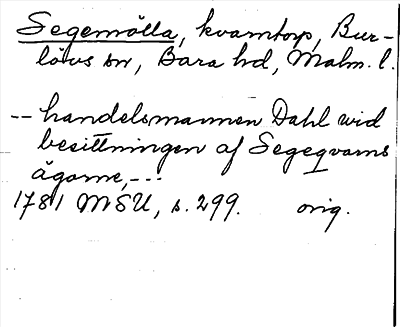 Segemölla, kvarntorp, Bur-
lövs sn, Bara hd, Malm. l.
-- handelsmannen Dahl wid
besittningen af Segeqvarns
ägorne,--.
1781 MSU, s. 299. orig.